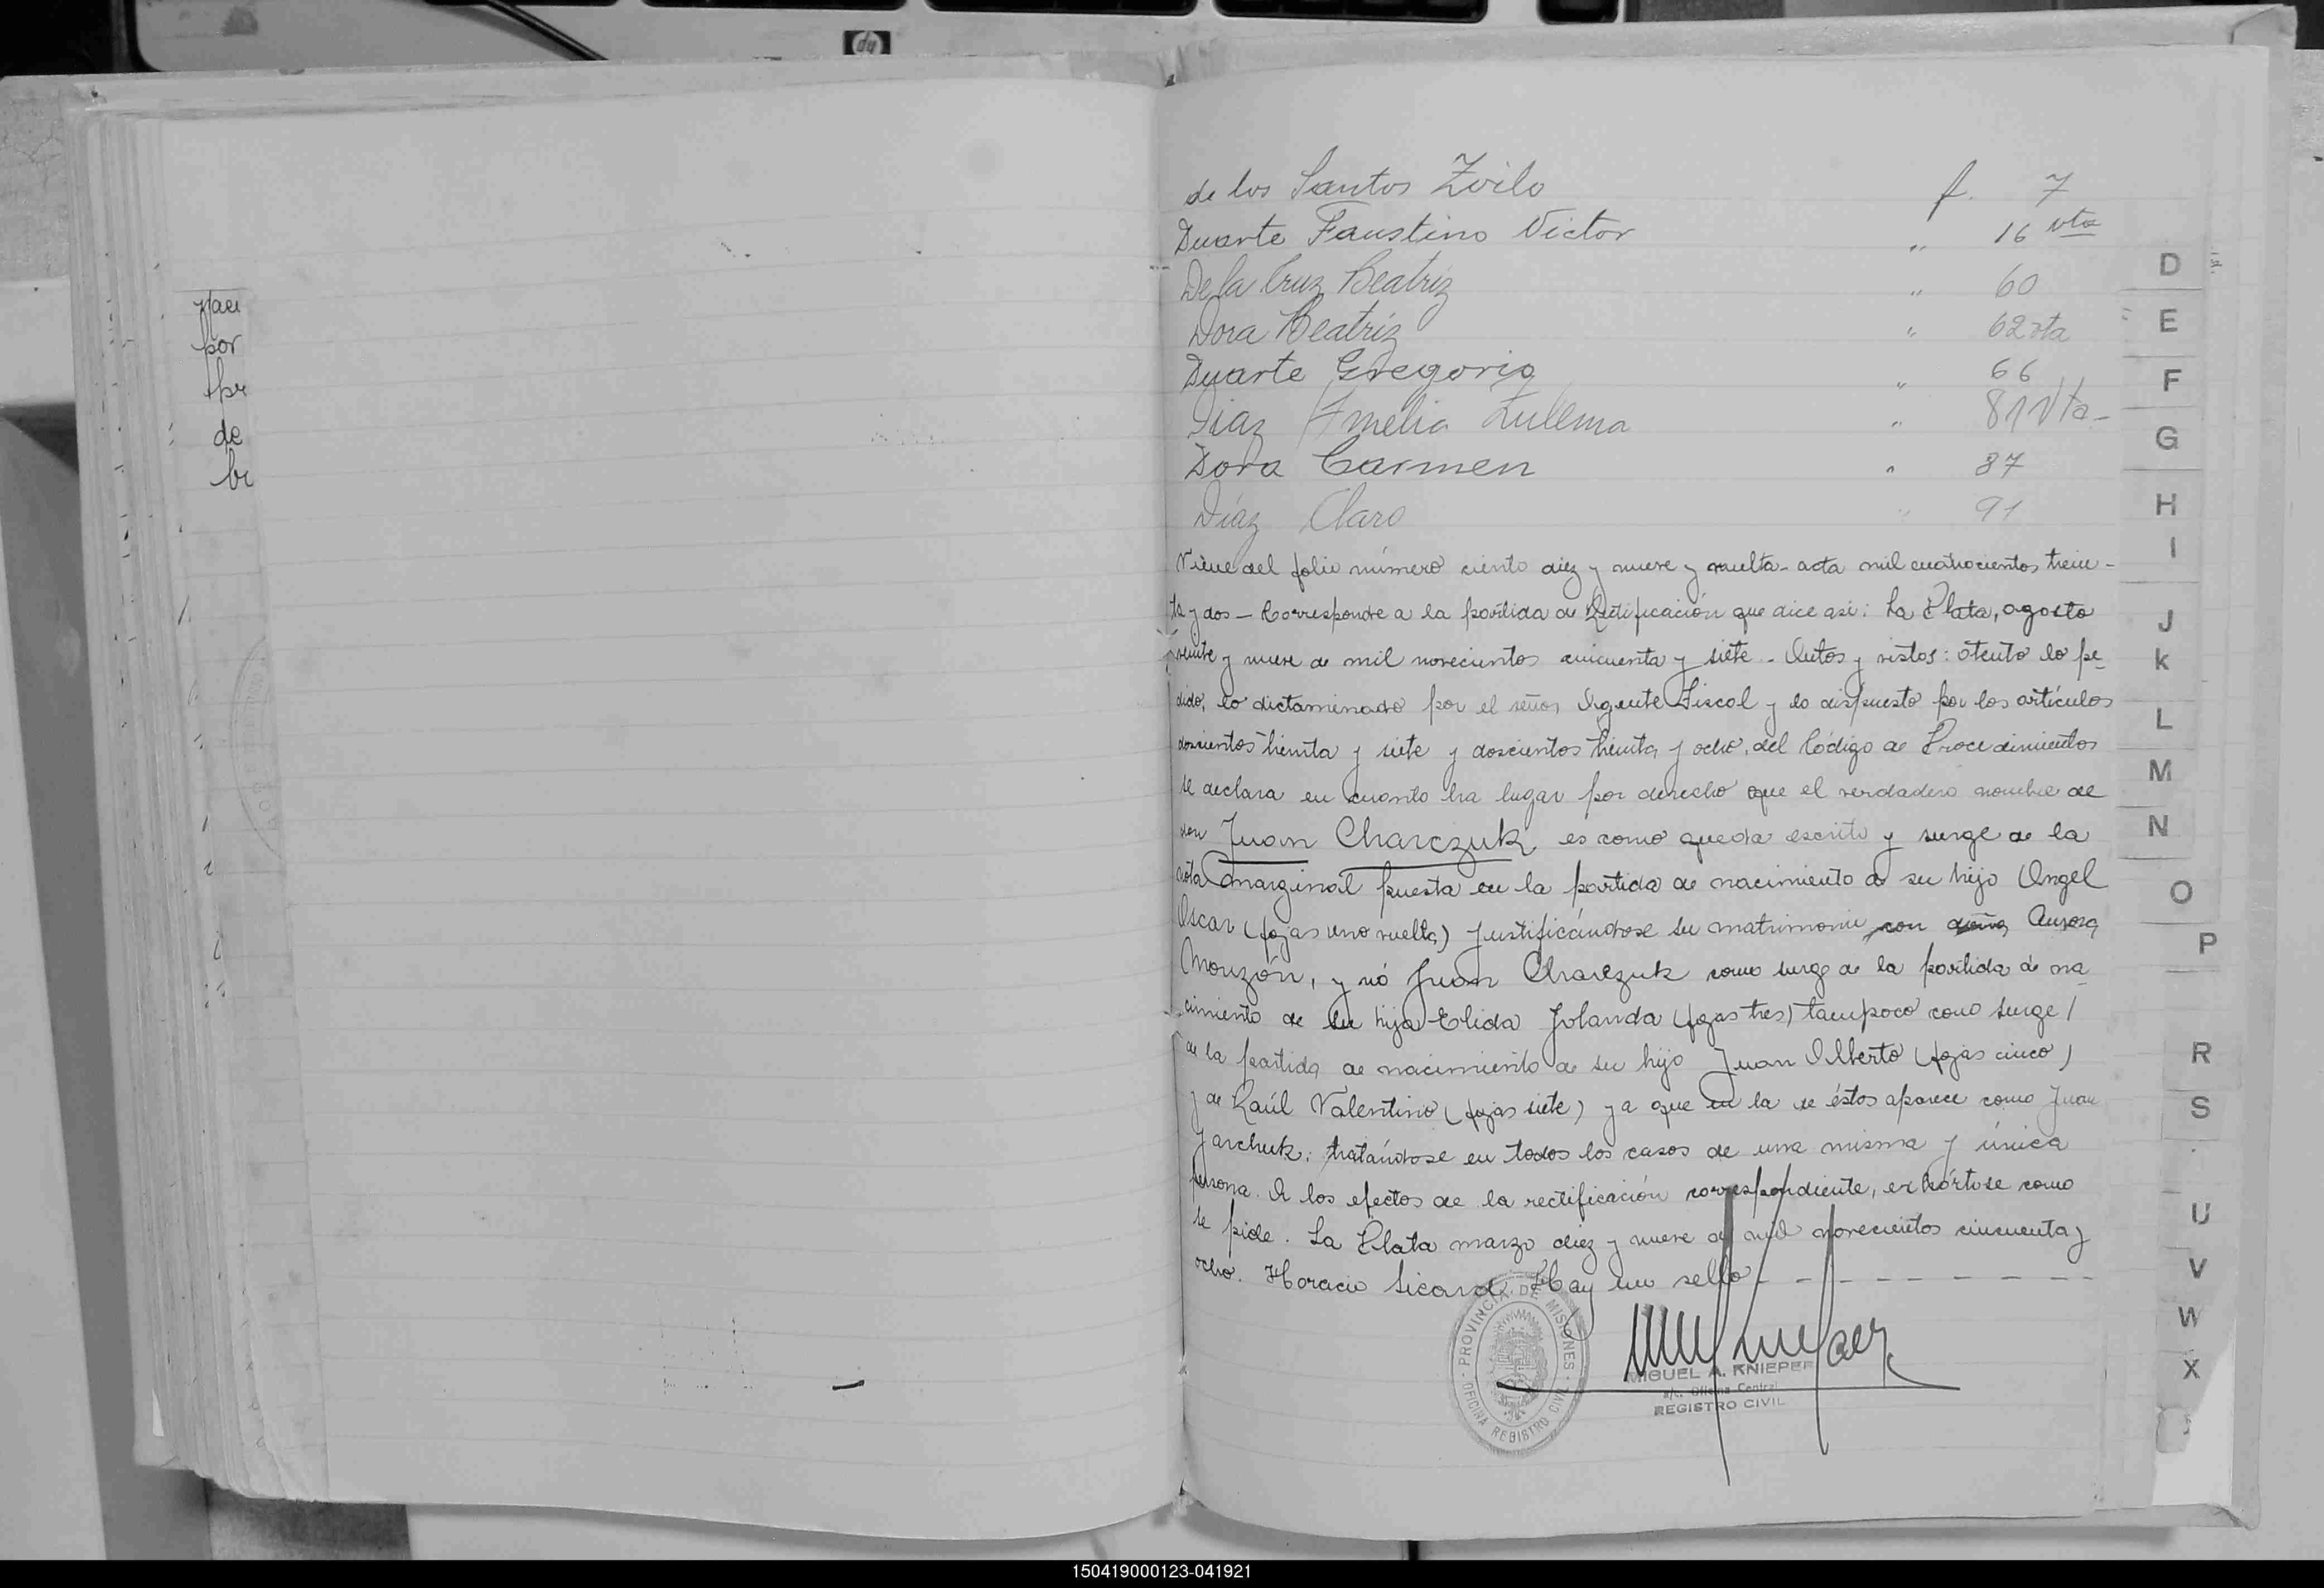 hp
nau
por
pr
de
br
de los Santos Zoilo f. 7
Duarte Faustino Victor " 16 vta
De la Cruz Beatriz " 60
Dora Beatriz " 62 vta
Duarte Gregorio " 66
Diaz Amelia Zulema " 81 Vta-
Dora Carmen " 87
Díaz Claro " 91
Viene del folio número ciento diez y nueve y vuelta - acta mil cuatrocientos trein-
ta y dos - Corresponde a la partida de Rectificación que dice asi: La Plata, agosto
veinte y nueve de mil novecientos cincuenta y siete - Autos y vistos: atento lo pe-
dido, lo dictaminado por el señor Agente Fiscal y lo dispuesto por los artículos
doscientos treinta y siete y doscientos treinta y ocho, del Código de Procedimientos
se declara en cuanto ha lugar por derecho que el verdadero nombre de
don Juan Charczuk es como queda escrito y surge de la
nota marginal puesta en la partida de nacimiento de su hijo Angel
Oscar (fojas uno vuelta) justificándose su matrimonio con doña Aurora
Monzón, y nó Juan Charezuk como surge de la partida de na-
cimiento de su hija Elida Jolanda (fojas tres) tampoco como surge /
de la partida de nacimiento de su hijo Juan Alberto (fojas cinco)
y de Raúl Valentino (fojas siete) ya que en la de éstos aparece como Juan
Jarchuk: tratándose en todos los casos de una misma y única
persona. A los efectos de la rectificación correspondiente, exhórtese como
se pide. La Plata marzo diez y nueve de mil novecientos cincuenta y
ocho. Horacio Sicard. Hay un sello - - - - - - - -
PROVINCIA DE MISIONES
OFICINA REGISTRO CIVIL
MIGUEL A. KNIEPER
a/c. Oficina Central
REGISTRO CIVIL
D
E
F
G
H
I
J
k
L
M
N
O
P
R
S
U
V
W
X
150419000123-041921